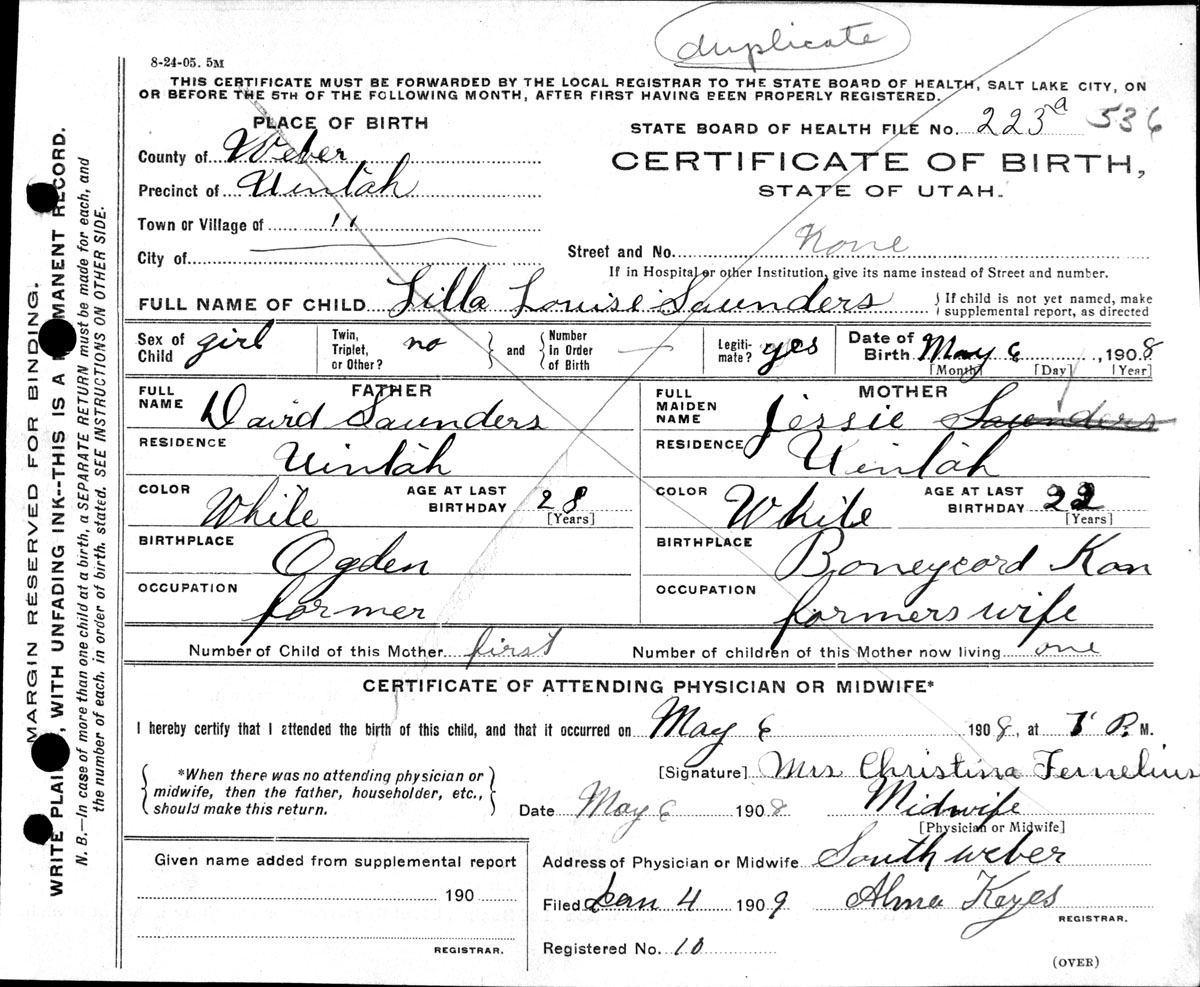 duplicate
8-24-05. 5M
THIS CERTIFICATE MUST BE FORWARDED BY THE LOCAL REGISTRAR TO THE STATE BOARD OF HEALTH, SALT LAKE CITY, ON
OR BEFORE THE 5TH OF THE FOLLOWING MONTH, AFTER FIRST HAVING BEEN PROPERLY REGISTERED.
PLACE OF BIRTH
STATE BOARD OF HEALTH FILE No. 223a 536
County of Weber
CERTIFICATE OF BIRTH,
Precinct of Uintah
STATE OF UTAH.
Town or Village of "
City of
Street and No. None
If in Hospital or other Institution, give its name instead of Street and number.
FULL NAME OF CHILD Lilla Louise Saunders { If child is not yet named, make
supplemental report, as directed
Sex of Child girl Twin, Triplet, or Other? no } and { Number in Order of Birth — Legiti-mate? yes Date of Birth May 6, 1908
[Month] [Day] [Year]
FATHER MOTHER
FULL NAME David Saunders FULL MAIDEN NAME Jessie Saunders
RESIDENCE Uintah RESIDENCE Uintah
COLOR White AGE AT LAST BIRTHDAY 28 [Years] COLOR White AGE AT LAST BIRTHDAY 22 [Years]
BIRTHPLACE Ogden BIRTHPLACE Boneycord Kan
OCCUPATION farmer OCCUPATION farmers wife
Number of Child of this Mother first Number of children of this Mother now living one
CERTIFICATE OF ATTENDING PHYSICIAN OR MIDWIFE*
I hereby certify that I attended the birth of this child, and that it occurred on May 6 1908, at P. M.
{ *When there was no attending physician or
midwife, then the father, householder, etc.,
should make this return. }
[Signature] Mrs Christina Fernelius
Date May 6 1908 Midwife
[Physician or Midwife]
Given name added from supplemental report
190
REGISTRAR.
Address of Physician or Midwife South weber
Filed Jan 4 1909 Alma Keyes
REGISTRAR.
Registered No. 10
(OVER)
MARGIN RESERVED FOR BINDING.
WRITE PLAI, WITH UNFADING INK--THIS IS A MANENT RECORD.
N. B.—In case of more than one child at a birth, a SEPARATE RETURN must be made for each, and
the number of each, in order of birth, stated. SEE INSTRUCTIONS ON OTHER SIDE.